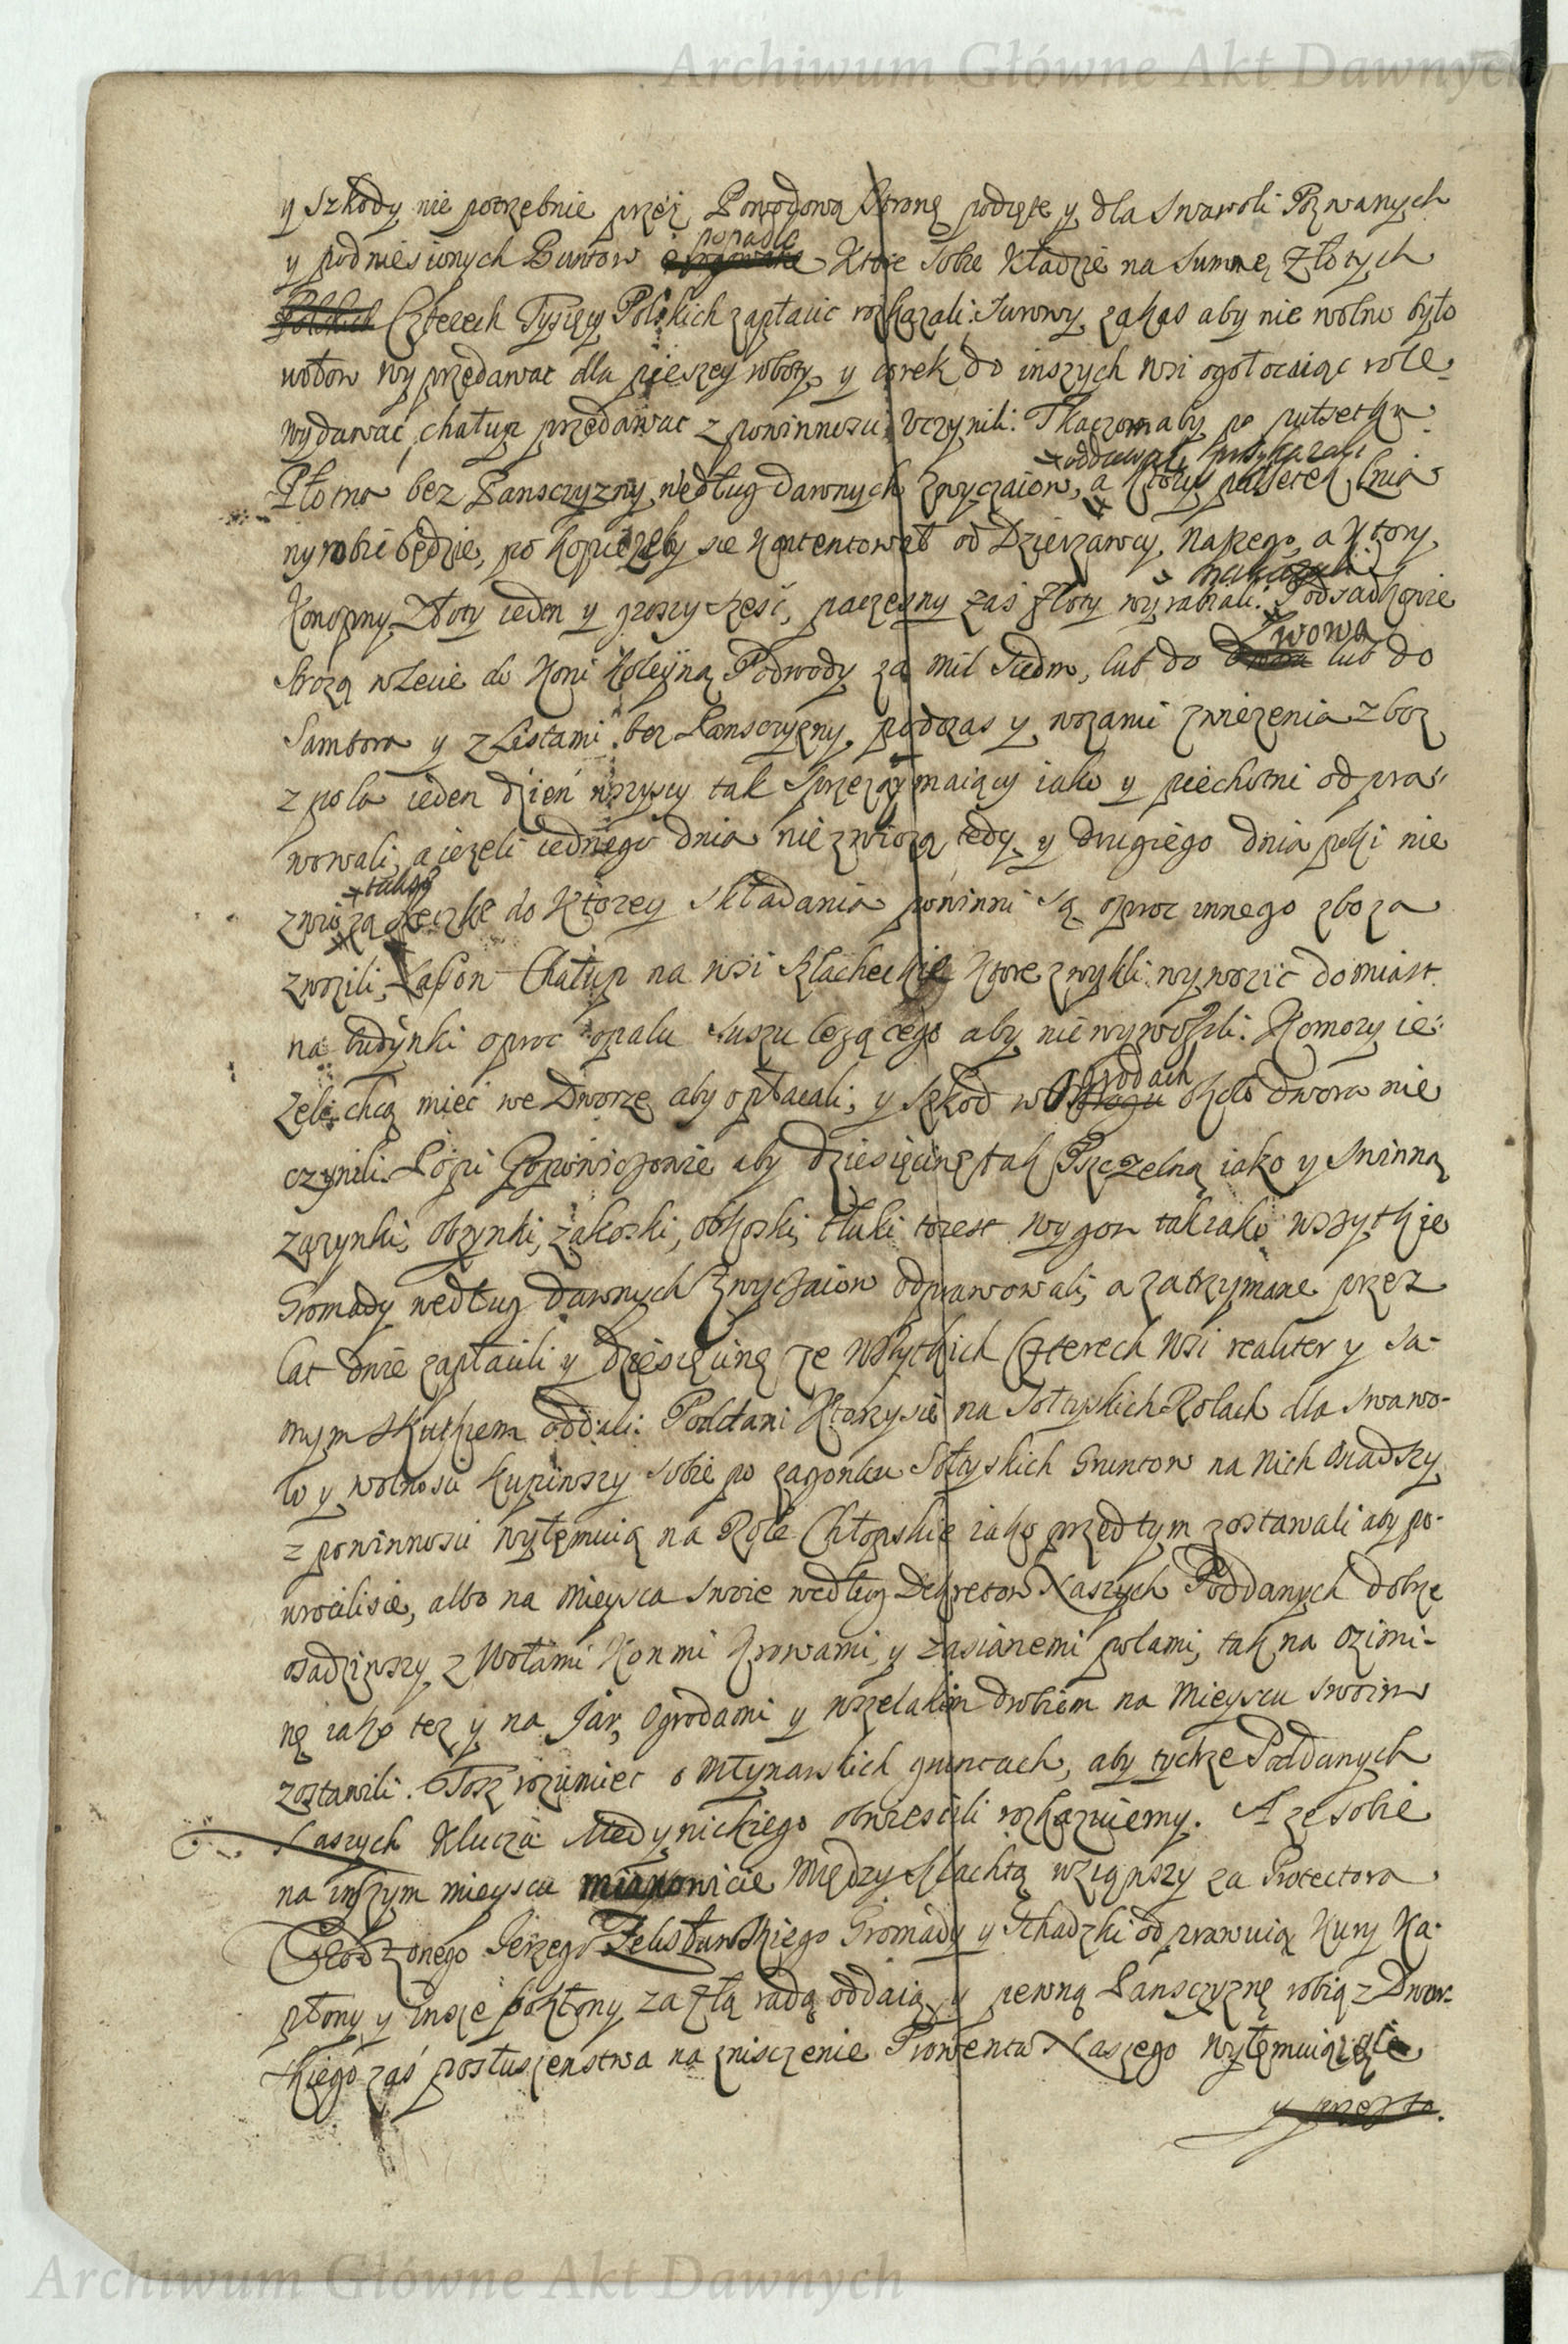 Archiwum Główne Akt Dawnych
y Szkody nie potrzebnie przez Powodową Stronę podięte y dla Swawoli Pozwanych
popadłe
y podniesionych Buntow Ktore Sobie Kładzie na Summę Złotych
Polskich Czterech Tysięcy Polskich zapłacic rozkazali: Surowy zakas aby nie wolno było
wołow wyprzedawac dla pieszey roboty, y corek do inszych wsi ogołocaiąc role
wydawać, chałup przedawac z powinnosci, Uczynili: Tkaczom aby po pułsetku
oddawali, przykazali
Płotna bez Pansczyzny według dawnych Zwyczaiow, a Ktory pułsetek lnia
ny robić będzie, po Kopie żeby sie Kontentował od Dzierzawcy Naszego, a Ktory
nakazali
Konopny Złoty ieden y groszy sześć, paczesny zaś Złoty wyrabiali: Podsadkowie
Lwowa
Strożą w Lecie do Koni Koleyną Podwody za mil Siedm, lub do Dwora lub do
Sambora y z Listami bez Pansczyzny, podczas y wozami zwiezenia zboz
z pola ieden dzień wszyscy tak Sprzęzay maiący iako y piechotni odpra
wowali, a iezeli iednego dnia nie zwiozą tedy y drugiego dnia poki nie
takze
zwiozą Reczkę do Ktorey składania powinni są oproc innego zboza
zwozili, Chałup na wsi Szlacheckie Ktore zwykli wywozic do miast
na budynki oproc opału suszu lezącego aby nie wywozili: Komory ie
grodach
zeli chcą mieć we Dworze aby opłacali, y szkod w O około dwora nie
czynili. Popi Popowiczowie aby dziesięcinę tak Pszczelną iako y Swinną
zazynki, obzynki, zakoski, obkoski, tłuki to iest wygon tak iako wszytkie
Gromady według dawnych Zwyczaiow odprawowali, a zatrzymane przez
lat dnie zapłacili y dziesięcinę ze wszytkich Czterech Wsi realiter y sa-
mym skutkiem oddali: Poddani Ktorzy sie na Sołtyskich Rolach dla swawo-
lo y wolnosci Kupiwszy sobie po zagonku Sołtyskich Gruntow na nich osiadszy
z powinnosci wyłęmuią na Role Chłopskie iako przed tym zostawali aby po-
wrocili sie, albo na mieysca swoie według Dekretow Naszych Poddanych dobrze
osadziwszy z Wołami Konmi Krowami, y zasianemi polami, tak na ozimi-
nę iako tez y na Jar, ogrodami y wszelakim drobiem na mieyscu swoim
zostawili. Tosz rozumiec o Młynarskich gruntach, aby tychze Poddanych
Naszych Klucza Medynickiego obwiescili rozkazuiemy. A ze sobie
na inszym mieyscu mianowicie między Szlachtą wziąwszy za Protectora
Urodzonego Jerzego Felisławskiego Gromady y Schadzki odprawuią Kury Ka-
płony y insze pokłony za złą radą oddaią, y pewną Pansczyznę robią z Dwor-
skiego zaś posłuszenstwa na zniszczenie Prowentu Naszego wyłęmuiąc się
y przez to.
Archiwum Główne Akt Dawnych